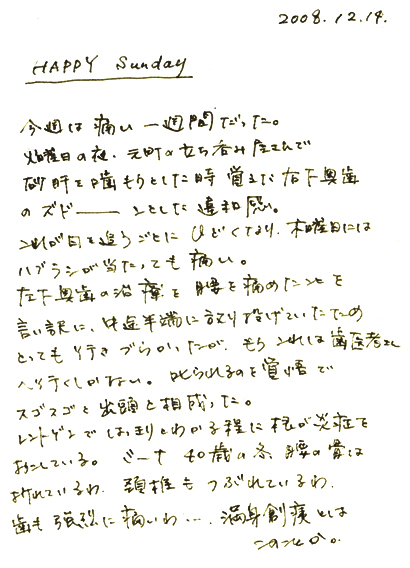 2008.12.14.
HAPPY Sunday
今週は痛い一週間だった。
火曜日の夜、元町の立ち呑み屋さんで
砂肝を噛もうとした時覚えた右下奥歯
のズドーーンとした違和感。
これが日を追うごとにひどくなり、木曜日には
ハブラシが当たっても痛い。
左下奥歯の治療を腰を痛めたことを
言い訳に、中途半端に放り投げていたため
とっても行きづらかったが、もうこれは歯医者さん
へ行くしかない。叱られるのを覚悟で
スゴスゴと出頭と相成った。
レントゲンではっきりとわかる程に根が炎症を
おこしている。さーて40歳の冬、腰の骨は
折れているわ、頚椎もつぶれているわ、
歯も強烈に痛いわ…、満身創痍とは
このことか。